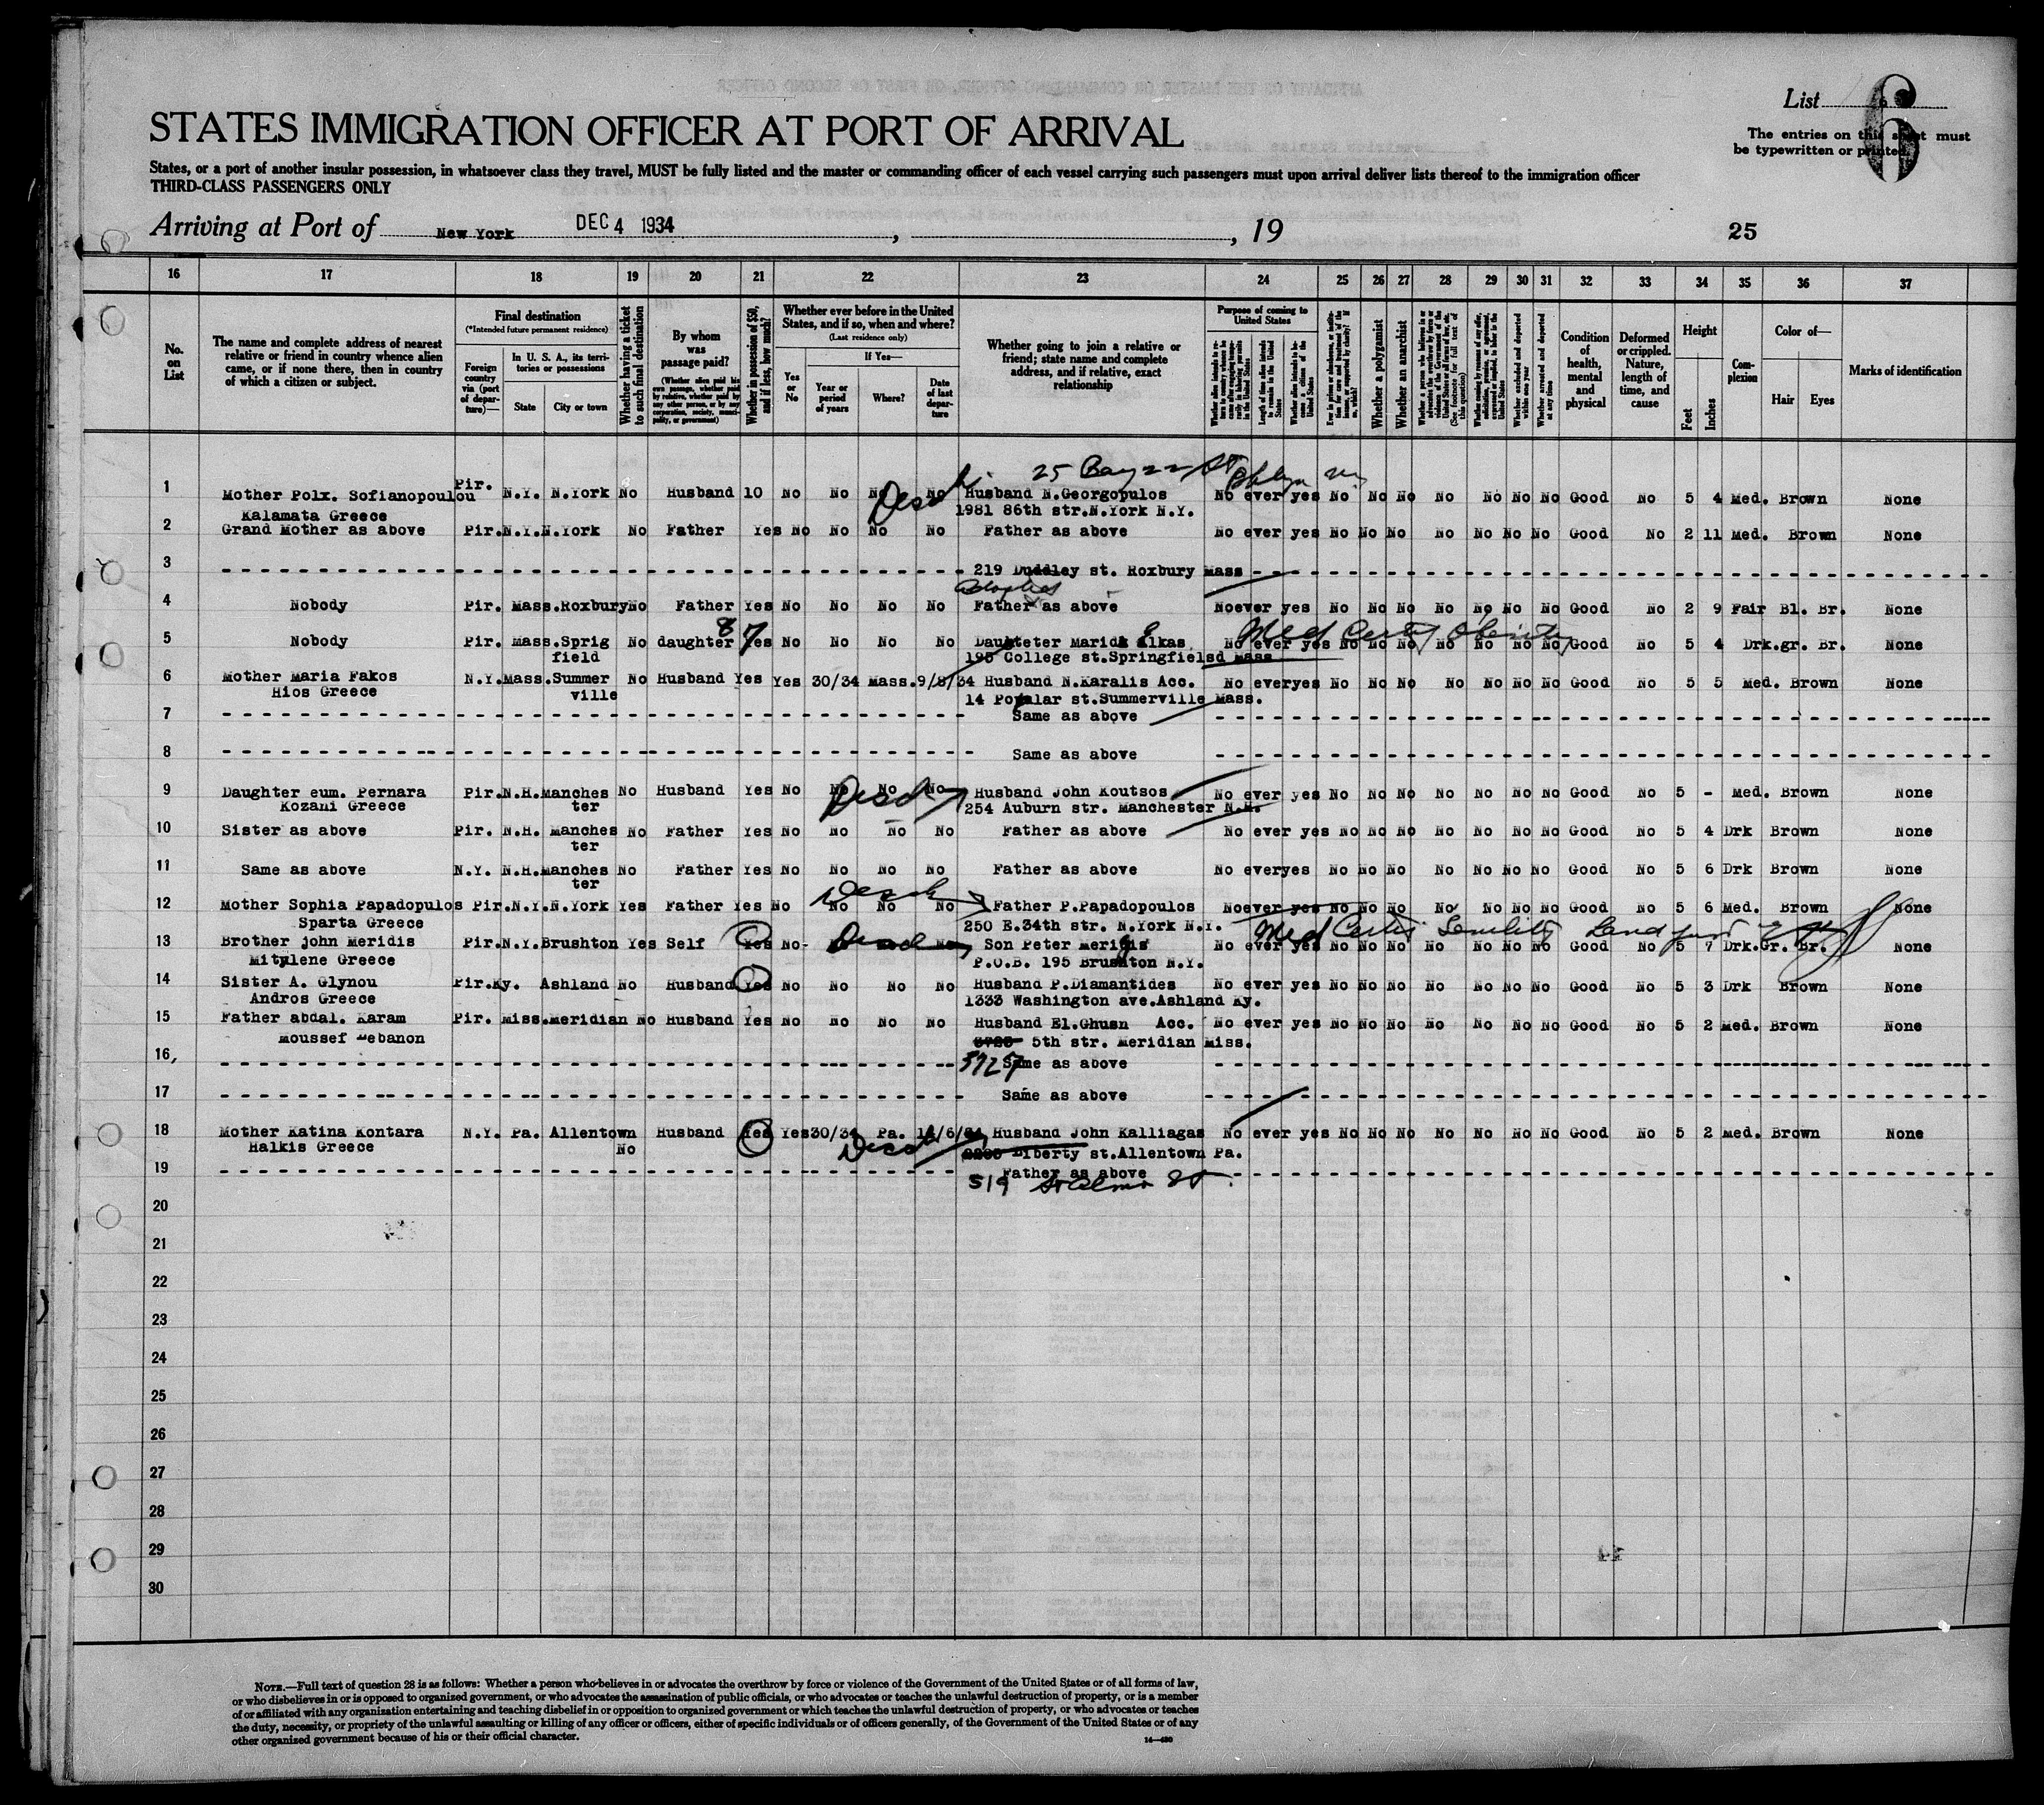 List 6
6
The entries on this sheet must
be typewritten or printed.
STATES IMMIGRATION OFFICER AT PORT OF ARRIVAL
States, or a port of another insular possession, in whatsoever class they travel, MUST be fully listed and the master or commanding officer of each vessel carrying such passengers must upon arrival deliver lists thereof to the immigration officer
THIRD-CLASS PASSENGERS ONLY
Arriving at Port of New York DEC 4 1934 , , 19 25
16 17 18 19 20 21 22 23 24 25 26 27 28 29 30 31 32 33 34 35 36 37
No. on List
The name and complete address of nearest relative or friend in country whence alien came, or if none there, then in country of which a citizen or subject.
Final destination
(*Intended future permanent residence)
Foreign country via (port of departure)—
In U. S. A., its territories or possessions
State
City or town
Whether having a ticket to such final destination
By whom was passage paid?
(Whether alien paid his own passage, whether paid by relative, whether paid by any other person, or by any corporation, society, municipality, or government)
Whether in possession of $50, and if less, how much?
Whether ever before in the United States, and if so, when and where?
(Last residence only)
Yes or No
If Yes—
Year or period of years
Where?
Date of last departure
Whether going to join a relative or friend; state name and complete address, and if relative, exact relationship
Purpose of coming to United States
Length of time alien intends to remain in the United States
Whether alien intends to become a citizen of the United States
Whether a polygamist
Whether an anarchist
Condition of health, mental and physical
Deformed or crippled. Nature, length of time, and cause
Height
Feet
Inches
Complexion
Color of—
Hair
Eyes
Marks of identification
25 Bay 22 St
Bklyn NY
1 Mother Polx. Sofianopoulou Pir. N.Y. N.York No Husband 10 No No No No Husband N.Georgopulos No ever yes No No No No No No No Good No 5 4 Med. Brown None
Kalamata Greece 1981 86th str.N.York N.Y.
2 Grand Mother as above Pir.N.Y.N.York No Father Yes No No No No Father as above No ever yes No No No No No No No Good No 2 11 Med. Brown None
3 219 Duddley st. Roxbury Mass
4 Nobody Pir. Mass.Roxbury No Father Yes No No No No Father as above No ever yes No No No No No No No Good No 2 9 Fair Bl. Br. None
Med Cert Obesity
5 Nobody Pir. Mass.Sprig No daughter Yes No No No No Daughteter Marida Elkas No ever yes No No No No No No No Good No 5 4 Drk.gr. Br. None
field 195 College st.Springfielsd Mass
6 Mother Maria Fakos N.Y.Mass.Summer No Husband Yes Yes 30/34 Mass.9/8/34 Husband N.Karalis Acc. No everyes No No No No No No No Good No 5 5 Med. Brown None
Hios Greece ville 14 Popalar st.Summerville Mass.
7 Same as above
8 Same as above
9 Daughter eum. Pernara Pir.N.H.Manches No Husband Yes No No No No Husband John Koutsos No ever yes No No No No No No No Good No 5 - Med. Brown None
Kozani Greece ter 254 Auburn str. Manchester N.H.
10 Sister as above Pir. N.H. Manches No Father Yes No No No No Father as above No ever yes No No No No No No No Good No 5 4 Drk Brown None
ter
11 Same as above N.Y. N.H.Manches No Father Yes No No No No Father as above No everyes No No No No No No No Good No 5 6 Drk Brown None
ter
12 Mother Sophia Papadopulos Pir.N.Y.N.York Yes Father Yes No No No No Father P.Papadopoulos No ever yes No No No No No No No Good No 5 6 Med. Brown None
Sparta Greece 250 E.34th str. N.York N.Y.
Med Certif Senility
13 Brother john Meridis Pir.N.Y.Brushton Yes Self Yes No No Son Peter Meridis No ever yes No No No No No No No Good No 5 7 Drk.Gr. Br. None
Mitylene Greece P.O.B. 195 Brushton N.Y.
14 Sister A. Glynou Pir.Ky. Ashland No Husband Yes No No No No Husband P.Diamantides No ever yes No No No No No No No Good No 5 3 Drk Brown None
Andros Greece 1333 Washington ave.Ashland Ky.
15 Father abdal. Karam Pir. Miss.Meridian No Husband Yes No No No No Husband El.Ghusn Acc. No ever yes No No No No No No No Good No 5 2 Med. Brown None
Moussef Lebanon 5th str. Meridian Miss.
16, Same as above
17 Same as above
18 Mother Katina Kontara N.Y. Pa. Allentown Husband Yes Yes 30/34 Pa. Husband John Kalliagas No ever yes No No No No No No No Good No 5 2 Med. Brown None
Halkis Greece No Liberty st.Allentown Pa.
19 Father as above
519
20
21
22
23
24
25
26
27
28
29
30
NOTE.—Full text of question 28 is as follows: Whether a person who believes in or advocates the overthrow by force or violence of the Government of the United States or of all forms of law,
or who disbelieves in or is opposed to organized government, or who advocates the assassination of public officials, or who advocates or teaches the unlawful destruction of property, or is a member
of or affiliated with any organization entertaining and teaching disbelief in or opposition to organized government or which teaches the unlawful destruction of property, or who advocates or teaches
the duty, necessity, or propriety of the unlawful assaulting or killing of any officer or officers, either of specific individuals or of officers generally, of the Government of the United States or of any
other organized government because of his or their official character.